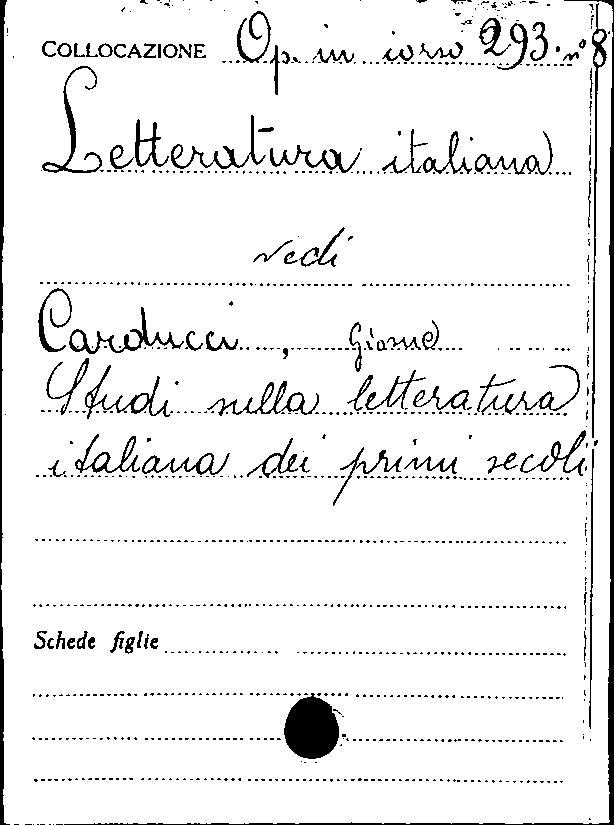 COLLOCAZIONE Op. in corso 293. n° 8
Letteratura italiana
vedi
Carducci, Giosue
Studi sulla letteratura
italiana dei primi secoli
Schede figlie